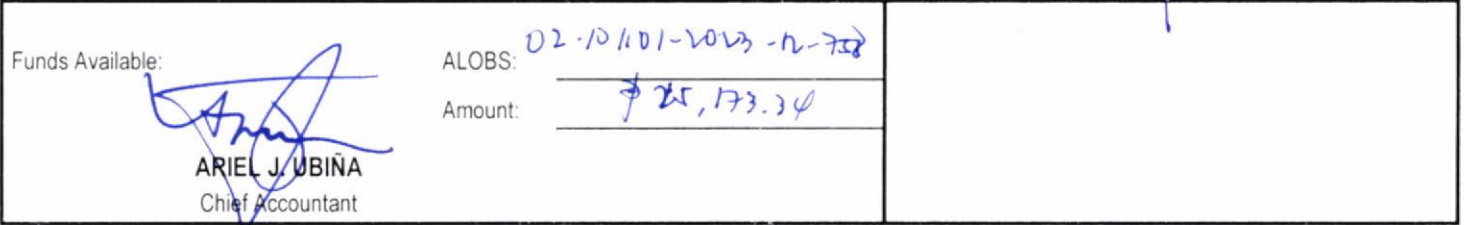 Funds Available:
ALOBS: 02-101101-2023-12-758
Amount: ₱ 25,173.34
ARIEL J. UBIÑA
Chief Accountant